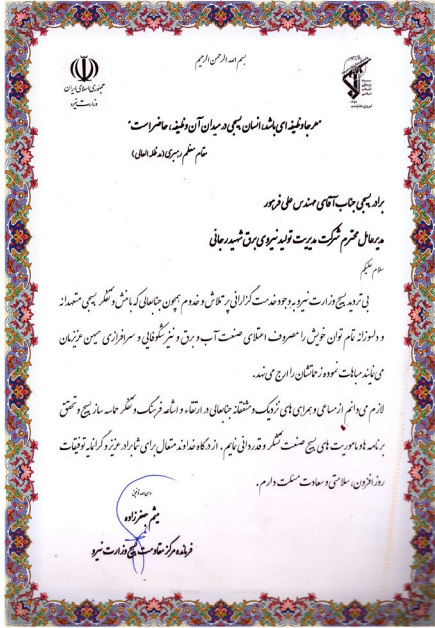 بسم الله الرحمن الرحیم
جمهوری اسلامی ایران
وزارت نیرو
"هر جا وظیفه ای باشد، انسان بسیجی در میدان آن وظیفه، حاضر است"
مقام معظم رهبری (مدظله العالی)
برادر بسیجی جناب آقای مهندس علی فرهور
مدیرعامل محترم شرکت مدیریت تولید نیروی برق شهید رجائی
سلام علیکم
بی تردید بسیج وزارت نیرو به وجود خدمت گزارانی پر تلاش و خدوم همچون جنابعالی که با منش و تفکر بسیجی متعهدانه
و دلسوزانه تمام توان خویش را مصروف اعتلای صنعت آب و برق و نیز شکوفایی و سرافرازی میهن عزیزمان
می نمایند مباهات نموده زحماتشان را ارج می نهد.
لازم می دانم از مساعی و همراهی های نزدیک و مشفقانه جنابعالی در ارتقاء و اشاعه فرهنگ و تفکر حماسه ساز بسیج و تحقق
برنامه ها و ماموریت های بسیج صنعت تشکر و قدردانی نمایم. از درگاه خداوند متعال برای شما برادر عزیز و گرانمایه توفیقات
روز افزون، سلامتی و سعادت مسئلت دارم.
و من الله توفیق
میثم جعفرزاده
فرمانده مرکز مقاومت بسیج وزارت نیرو